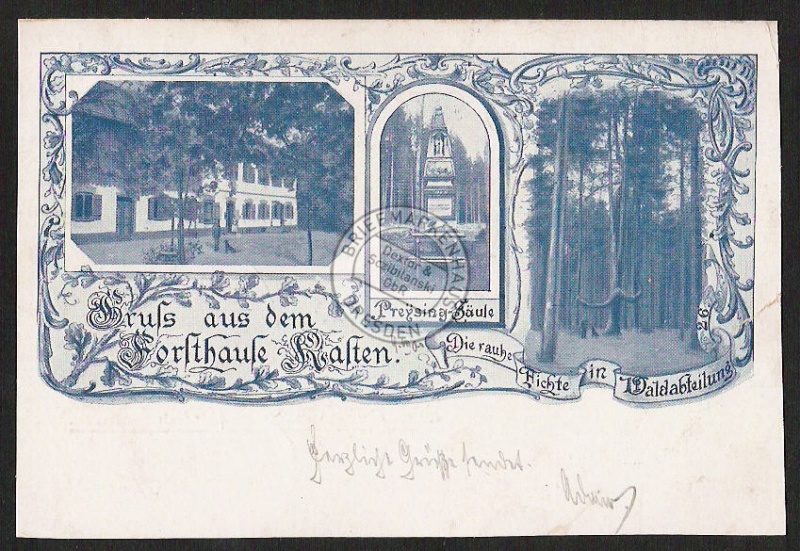 Gruss aus dem
Forsthause Kasten.
Preysing-Säule
Die rauhe Fichte in Waldabteilung
26
BRIEFMARKENHAUS
Dexter &
Scibilanski
GbR
DRESDEN
Herzliche Grüße sendet.